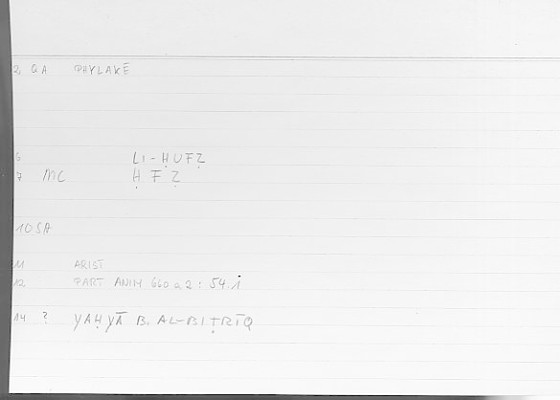 2 QA PHYLAKĒ
6 LI-ḤUFẒ
7 MC ḤFẒ
10 SA
11 ARIST
12 PART ANIM 660 a 2 : 54.1
14 ? YAḤYĀ B. AL-BIṬRĪQ